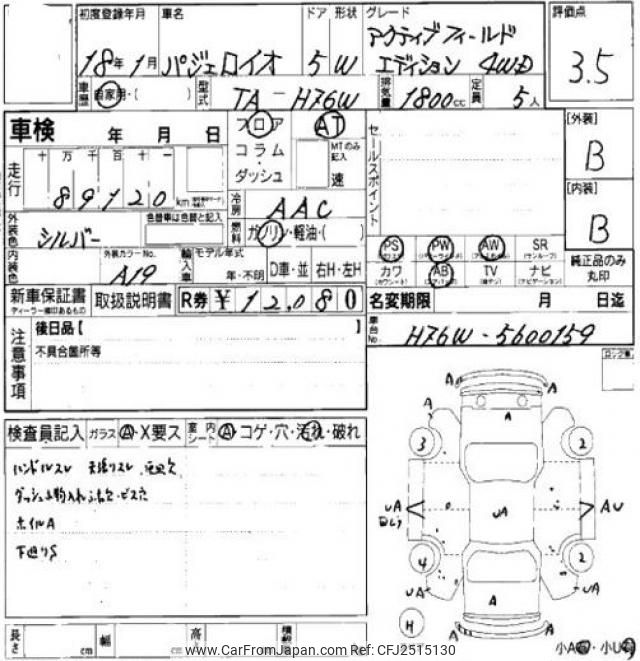 初度登録年月 車名 ドア 形状 グレード 評価点
18年1月 パジェロイオ 5 W アクティブフィールド
エディション 4WD
3.5
車歴 自家用・( ) 型式 TA-H76W 排気量 1800cc 定員 5人
車検 年 月 日 フロア AT セールスポイント [外装]
B
走行 十万千百十一 コラム・ MTのみ記入
89120 km ダッシュ 速 [内装]
B
冷房 AAC
外装色 シルバー 色替車は色替と記入 燃料 ガソリン・軽油・( )
PS PW AW SR
(サンルーフ)
純正品のみ
丸印
内装色 外装カラーNo. A19 輸入車 モデル年式 年・不明 D車・並 右H・左H
カワ AB TV ナビ
(カワシート) (エアバッグ) (ナビゲーション)
新車保証書 取扱説明書 R券 ¥12,080 名変期限 月 日迄
ディーラー捺印あるもの
注意事項 後日品【 】
車台No. H76W-5600159
不具合箇所等
検査員記入 ガラス A・X要ス 室内シート A・コゲ・穴・汚れ・破れ
ハンドルスレ 天張リスレ
ダッシュ小物入れ ビス穴
ホイルA
下廻りS
A A
A A
3 2
UA UA AU
4 2
UA A UA
H A A
長さ cm 幅 cm 高さ
www.CarFromJapan.com Ref: CFJ2515130